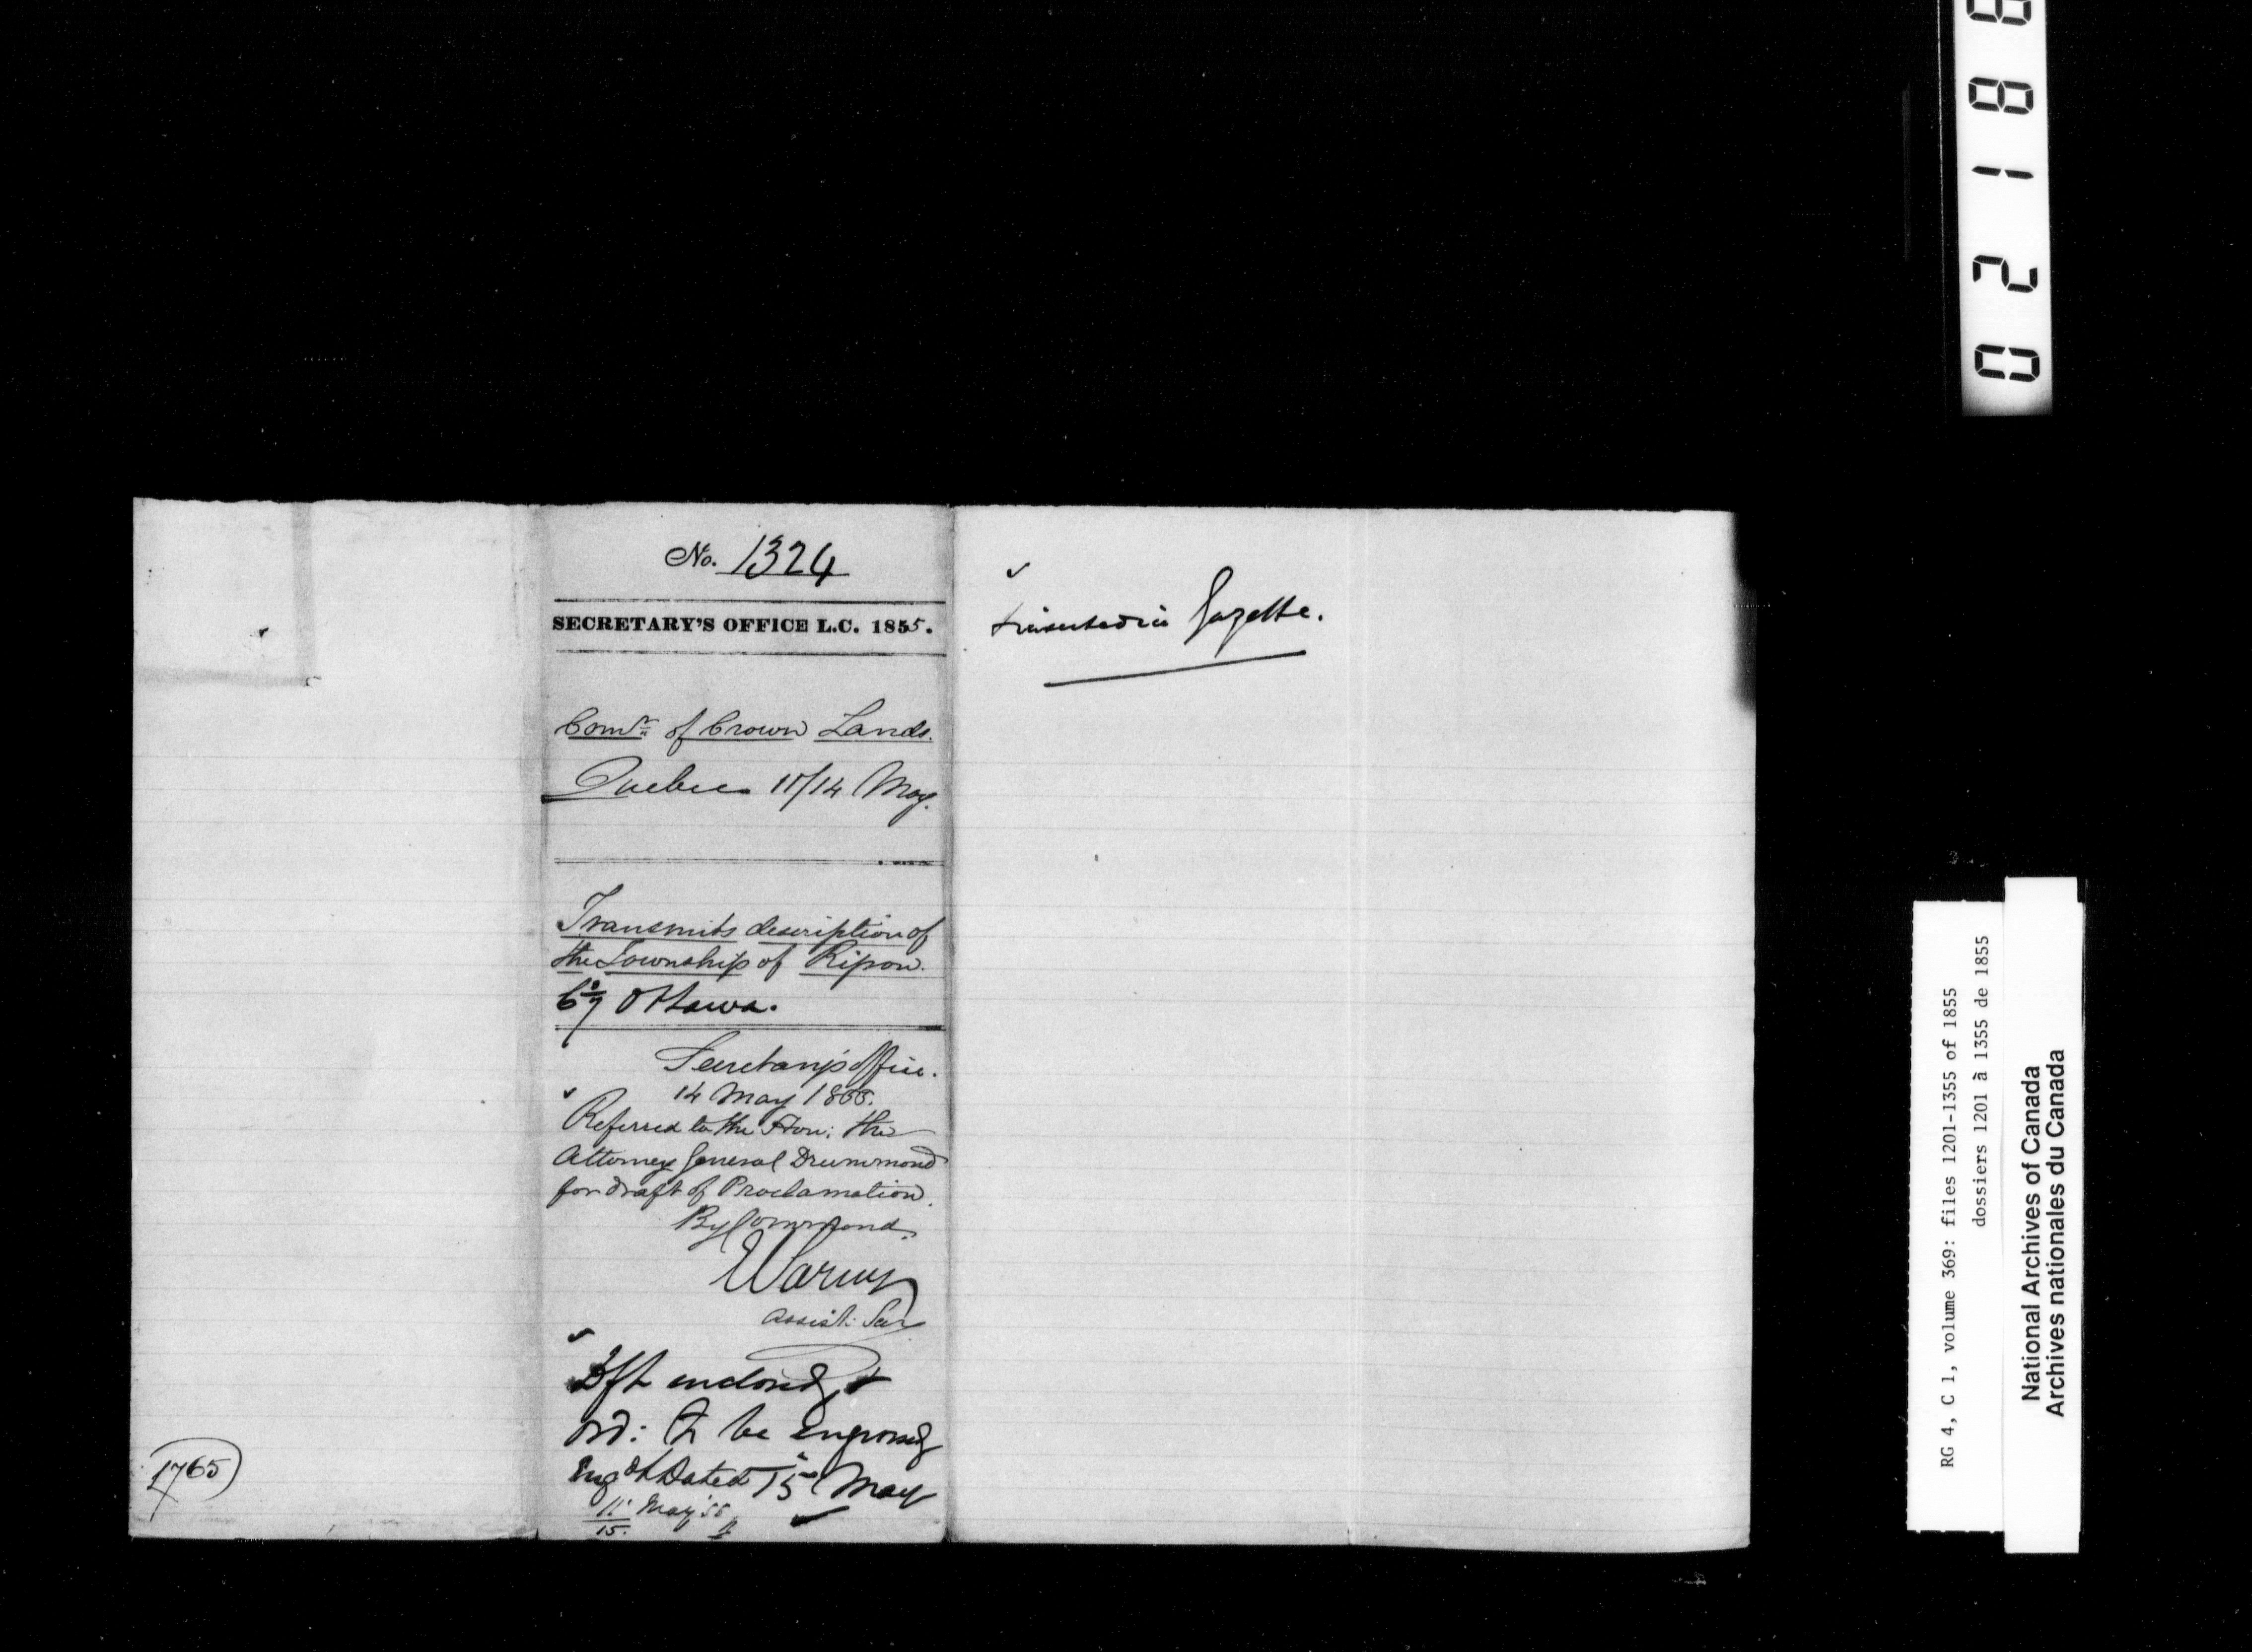 No. 1324
SECRETARY'S OFFICE L.C. 1855.
Comr of Crown Lands.
Quebec 11/14 May.
Transmits description of
the Township of Ripon.
Coy Ottawa.
Secretary's Office.
14 May 1855.
Referred to the Hon: the
Attorney General Drummond
for draft of Proclamation.
By Command.
Assist: Sec
Dft enclosed, &
ord: to be engrossed
Engd & Dated 15 May
11 May '55
15.
1765
& inserted in Gazette.
0 2 1 8 8
RG 4, C 1, volume 369: files 1201-1355 of 1855
dossiers 1201 à 1355 de 1855
National Archives of Canada
Archives nationales du Canada